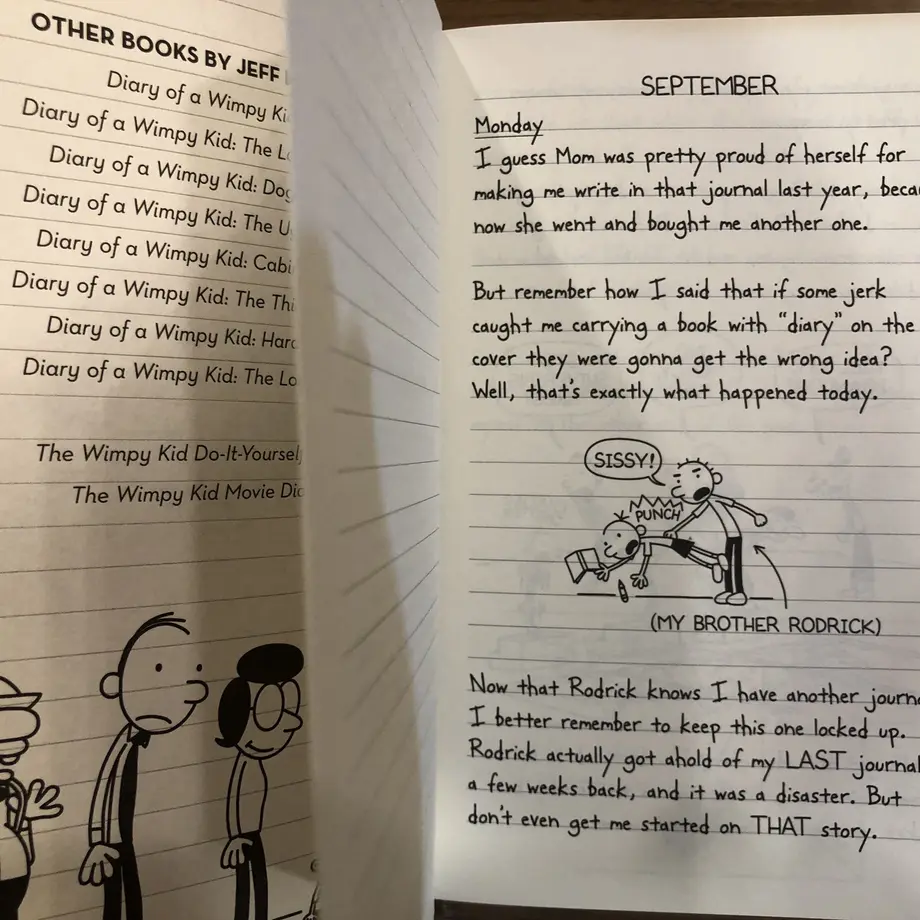 OTHER BOOKS BY JEFF
Diary of a Wimpy Ki
Diary of a Wimpy Kid: The L
Diary of a Wimpy Kid: Dog
Diary of a Wimpy Kid: The U
Diary of a Wimpy Kid: Cabi
Diary of a Wimpy Kid: The Thi
Diary of a Wimpy Kid: Hard
Diary of a Wimpy Kid: The Lo
The Wimpy Kid Do-It-Yourself
The Wimpy Kid Movie Dia
SEPTEMBER
Monday
I guess Mom was pretty proud of herself for
making me write in that journal last year, beca
now she went and bought me another one.
But remember how I said that if some jerk
caught me carrying a book with “diary” on the
cover they were gonna get the wrong idea?
Well, that's exactly what happened today.
SISSY!
PUNCH
(MY BROTHER RODRICK)
Now that Rodrick knows I have another journ
I better remember to keep this one locked up.
Rodrick actually got ahold of my LAST journal
a few weeks back, and it was a disaster. But
don't even get me started on THAT story.